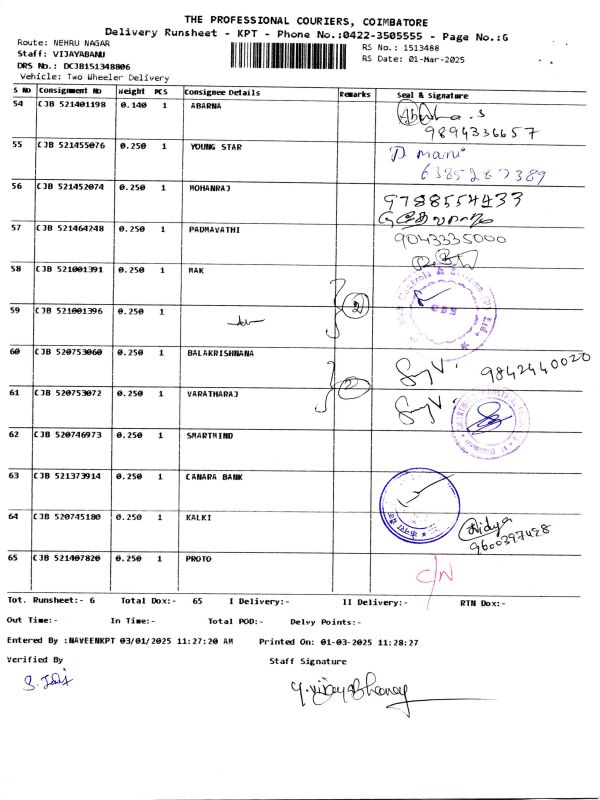 THE PROFESSIONAL COURIERS, COIMBATORE
Delivery Runsheet - KPT - Phone No.:0422-3505555 - Page No.:6
Route: NEHRU NAGAR
Staff: VIJAYABANU
DRS No.: DCJB151348806
Vehicle: Two Wheeler Delivery
RS No.: 1513488
RS Date: 01-Mar-2025
S No Consignment No Weight PCS Consignee Details Remarks Seal & Signature
54 CJB 521401198 0.140 1 ABARNA
9894336657
55 CJB 521455076 0.250 1 YOUNG STAR
D. mani
6385267389
56 CJB 521452074 0.250 1 MOHANRAJ
9788554433
57 CJB 521464248 0.250 1 PADMAVATHI
9043335000
58 CJB 521001391 0.250 1 MAK
59 CJB 521001396 0.250 1
2
60 CJB 520753060 0.250 1 BALAKRISHNANA
9842440020
61 CJB 520753072 0.250 1 VARATHARAJ
2
62 CJB 520746973 0.250 1 SMARTMIND
63 CJB 521373914 0.250 1 CANARA BANK
64 CJB 520745180 0.250 1 KALKI
Vidya
9600397428
65 CJB 521407820 0.250 1 PROTO
C/N
Tot. Runsheet:- 6 Total Dox:- 65 I Delivery:- II Delivery:- RTN Dox:-
Out Time:- In Time:- Total POD:- Delvy Points:-
Entered By :NAVEENKPT 03/01/2025 11:27:20 AM Printed On: 01-03-2025 11:28:27
Verified By Staff Signature